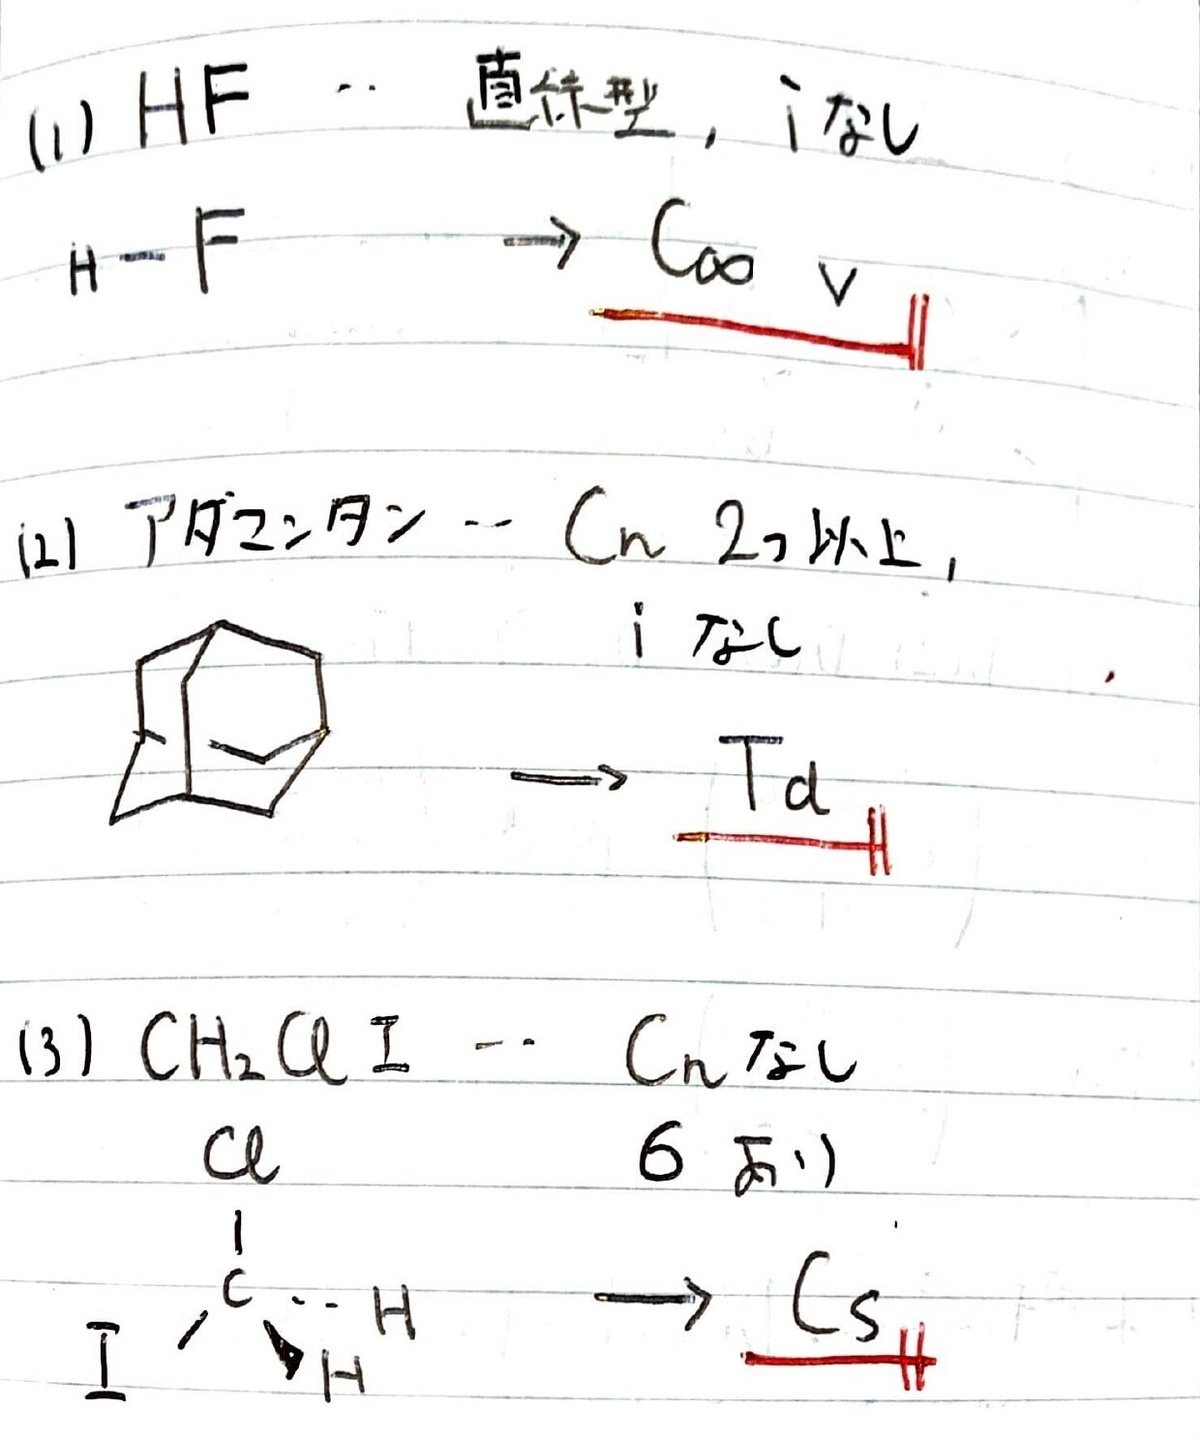 (1) HF ‥ 直線型, iなし
H-F → C∞v
(2) アダマンタン ‥ Cn 2つ以上,
i なし
→ Td
(3) CH₂ClI ‥ Cnなし
Cl 6 あり
C ‥ H → Cs
I H